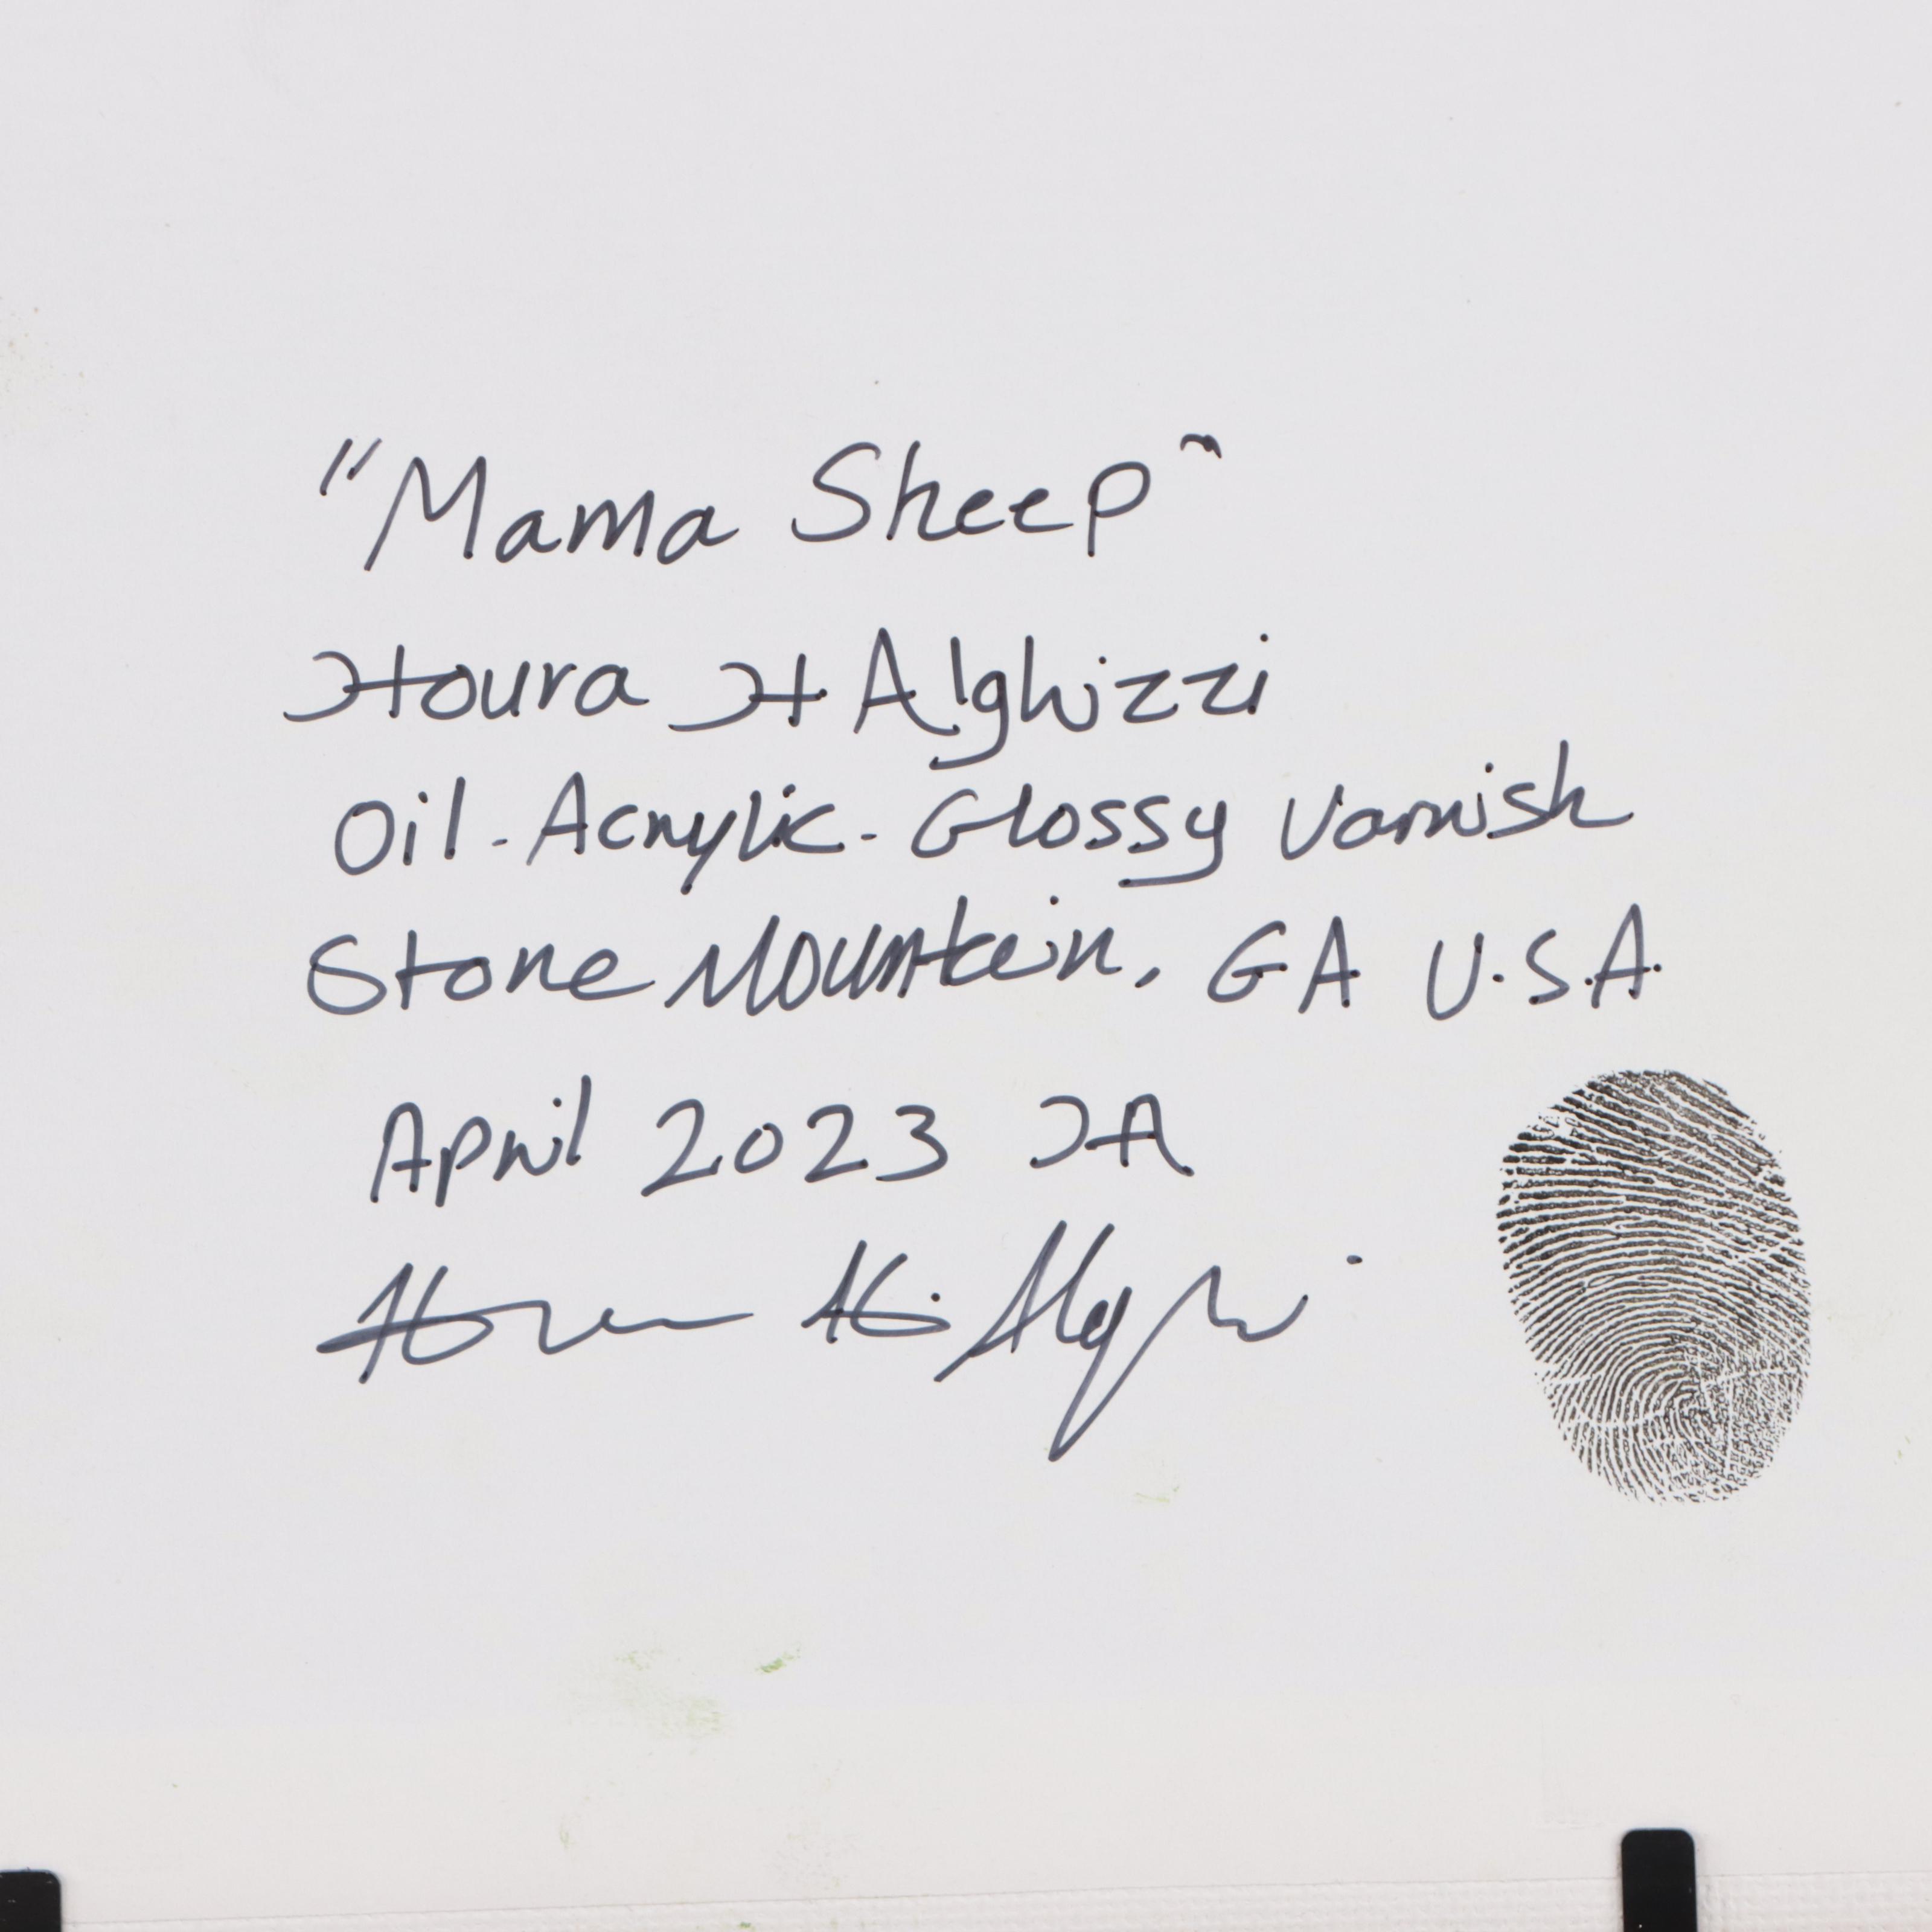 "Mama Sheep"
Houra H Alghizzi
Oil - Acrylic - Glossy Varnish
Stone Mountain, GA U.S.A.
April 2023 HA